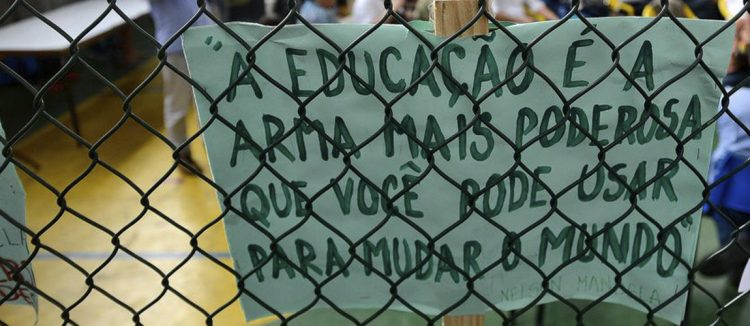 "A EDUCAÇÃO É A
ARMA MAIS PODEROSA
QUE VOCÊ PODE USAR
PARA MUDAR O MUNDO"
NELSON MANDELA